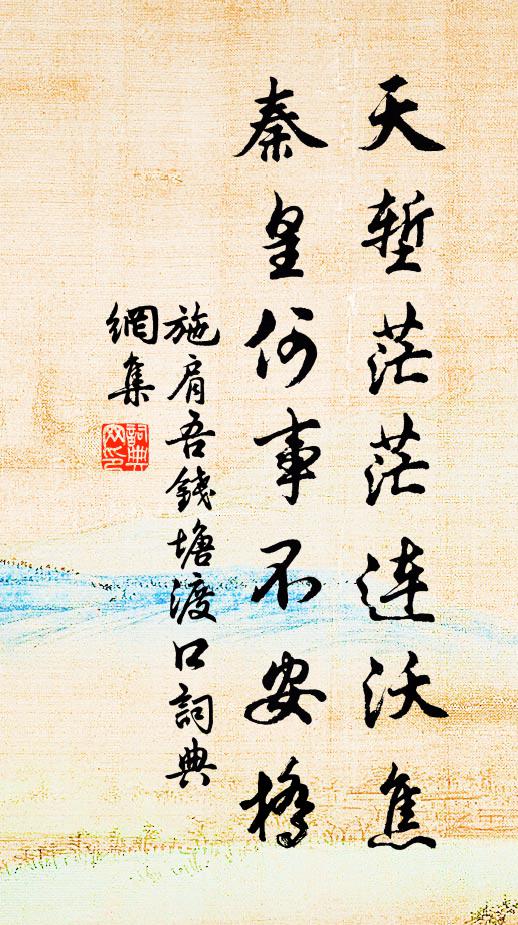 天堑茫茫连沃焦
秦皇何事不安桥
施肩吾錢塘渡口詞典
網集